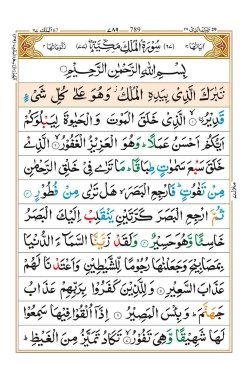 تبٰرك الذي ٢٩ ٧٨٩ 789 الملك ٦٧
اٰيَاتُهَا ٣٠ (٦٧) سُوْرَةُ الْمُلْكِ مَكِّيَّةٌ (٧٧) رُكُوْعَاتُهَا ٢
بِسْمِ اللّٰهِ الرَّحْمٰنِ الرَّحِيْمِ
تَبٰرَكَ الَّذِيْ بِيَدِهِ الْمُلْكُ وَهُوَ عَلٰى كُلِّ شَيْءٍ
قَدِيْرُ ۙ۝١ الَّذِيْ خَلَقَ الْمَوْتَ وَالْحَيٰوةَ لِيَبْلُوَكُمْ
اَيُّكُمْ اَحْسَنُ عَمَلًا ؕ وَهُوَ الْعَزِيْزُ الْغَفُوْرُ ۙ۝٢ الَّذِيْ
خَلَقَ سَبْعَ سَمٰوٰتٍ طِبَاقًا ؕ مَا تَرٰى فِيْ خَلْقِ الرَّحْمٰنِ
مِنْ تَفٰوُتٍ ؕ فَارْجِعِ الْبَصَرَ ۙ هَلْ تَرٰى مِنْ فُطُوْرٍ ۝٣
ثُمَّ ارْجِعِ الْبَصَرَ كَرَّتَيْنِ يَنْقَلِبْ اِلَيْكَ الْبَصَرُ
خَاسِئًا وَّهُوَ حَسِيْرٌ ۝٤ وَلَقَدْ زَيَّنَّا السَّمَآءَ الدُّنْيَا
بِمَصَابِيْحَ وَجَعَلْنٰهَا رُجُوْمًا لِّلشَّيٰطِيْنِ وَاَعْتَدْنَا لَهُمْ
عَذَابَ السَّعِيْرِ ۝٥ وَلِلَّذِيْنَ كَفَرُوْا بِرَبِّهِمْ عَذَابُ
جَهَنَّمَ ؕ وَبِئْسَ الْمَصِيْرُ ۝٦ اِذَآ اُلْقُوْا فِيْهَا سَمِعُوْا
لَهَا شَهِيْقًا وَّهِيَ تَفُوْرُ ۙ۝٧ تَكَادُ تَمَيَّزُ مِنَ الْغَيْظِ ؕ